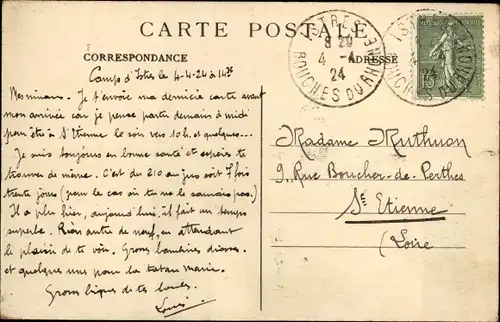 CARTE POSTALE
CORRESPONDANCE
ADRESSE
ISTRES
8 20
4 -4
24
BOUCHES DU RHONE
ISTRES
4 -4
24
BOUCHES DU RHONE
15
Camp d'Istres le 4-4-24 à 14h
Je t'envoie ma dernière carte avant
mon arrivée car je pense partir demain à midi
pour être à St Etienne le soir vers 10h. et quelques...
Je suis toujours en bonne santé et espère te
trouver de même. C'est du 210 au jus soit 7 fois
trente jours (pour le cas où tu ne le saurais pas.)
Il a plu hier, aujourd'hui, il fait un temps
superbe. Rien autre de neuf, en attendant
le plaisir de te voir. Grosses
et quelques unes pour la tatan Marie.
Grosses de ton
Louis
Madame Muthuon
9, Rue Boucher-de-Perthes
St Etienne
(Loire)